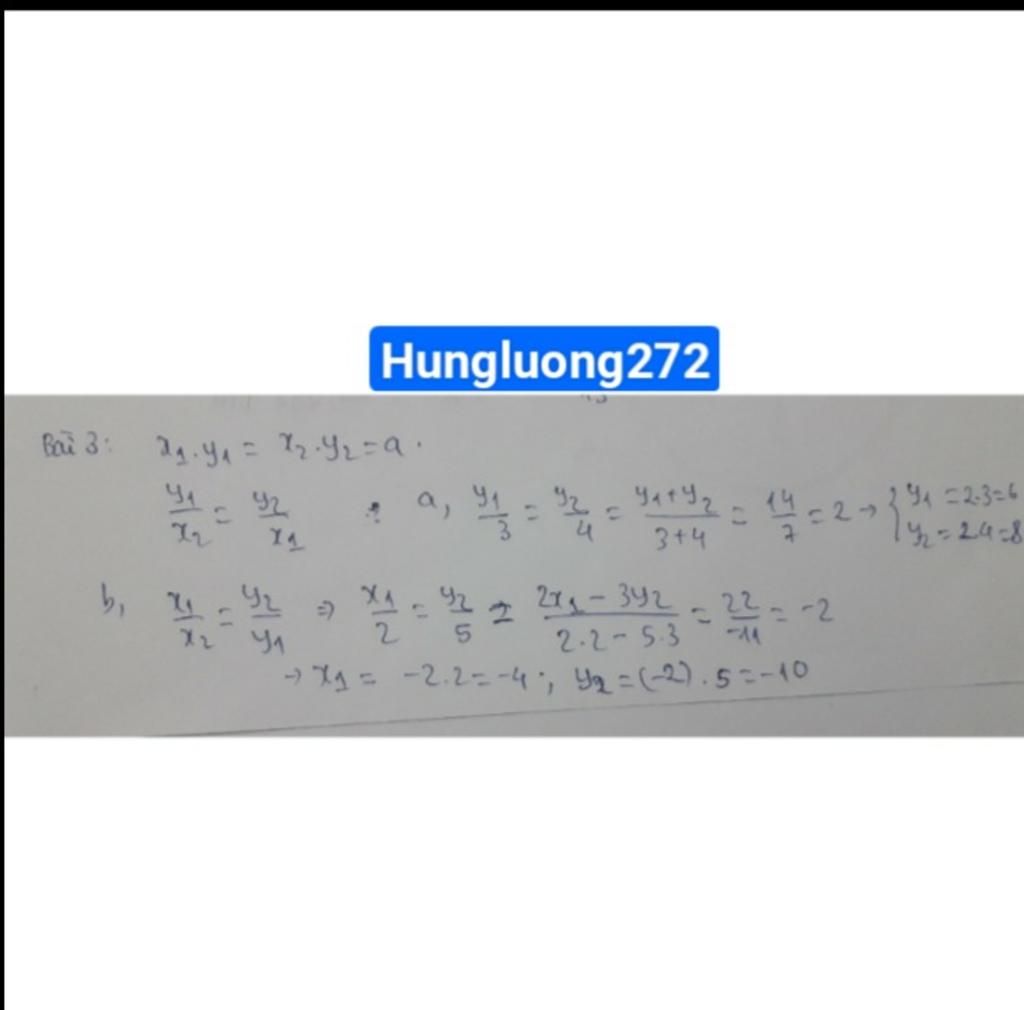 Hungluong272
Bài 3: x₁.y₁ = x₂.y₂ = a.
y₁/x₂ = y₂/x₁ ; a, y₁/3 = y₂/4 = (y₁+y₂)/(3+4) = 14/7 = 2 → { y₁ = 2.3=6 y₂ = 2.4=8
b, x₁/x₂ = y₂/y₁ ⇒ x₁/2 = y₂/5 = (2x₁ - 3y₂)/(2.2 - 5.3) = 22/-11 = -2
→ x₁ = -2.2 = -4 ; y₂ = (-2).5 = -10